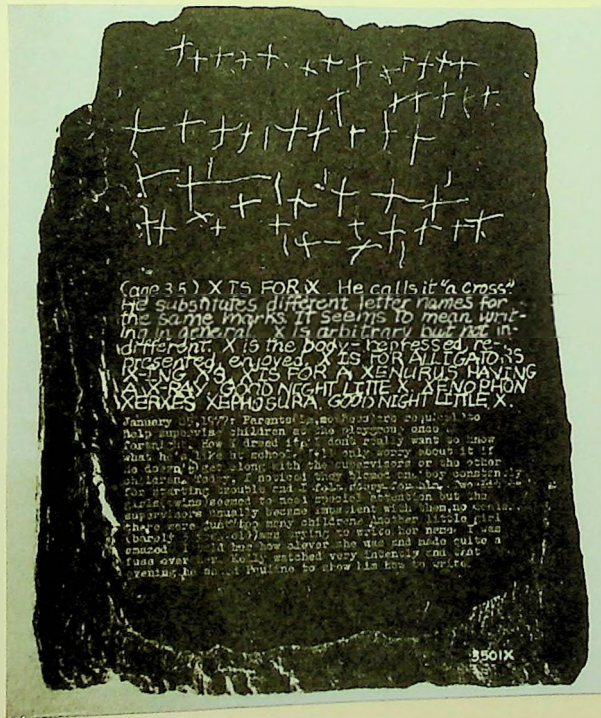 (age 3.5) X IS FOR X. He calls it "a cross"
He substitutes different letter names for
the same marks. It seems to mean writ-
ing in general. X is arbitrary but not in-
different. X is the body - repressed, re-
presented, enjoyed. X IS FOR ALLIGATORS
XING. IS FOR A XENURUS HAVING
A X-RAY. GOOD NIGHT LITTLE X. XENOPHON
XERXES XEPHOSURA. GOOD NIGHT LITTLE X.
January 1977: Parents are required to
help supervise children at the playgroup once
How I dread it. I don't really want to know
what he's like at school. I only worry about it if
he doesn't get along with the supervisors or the other
children. Today, I noticed they blamed one boy constantly
for starting trouble and
girls (twins) seemed to need special attention but the
supervisors usually became impatient with them, no
there were just too many children. Another little girl
(barely was trying to write her name. I was
amazed told her how clever she was and made quite a
fuss over her. Kelly watched very intently and that
evening he asked Pauline to show him how to write.
3501X